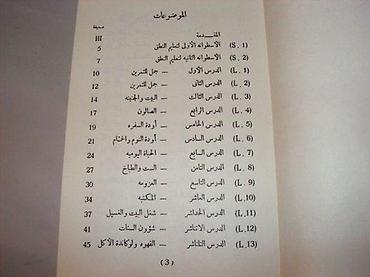 الموضوعات
صحيفة
المقدمة III
(S. 1) الأسطوانه الأولى لتعليم النطق 5
(S. 2) الأسطوانه الثانيه لتعليم النطق 7
(L. 1) الدرس الأول — جمل للتمرين 10
(L. 2) الدرس الثانى — جمل للتمرين 12
(L. 3) الدرس الثالث — البيت والجنينه 14
(L. 4) الدرس الرابع — الصالون 17
(L. 5) الدرس الخامس — أودة السفره 19
(L. 6) الدرس السادس — أودة النوم والحمّام 21
(L. 7) الدرس السابع — الحياة اليوميه 24
(L. 8) الدرس الثامن — الست والطباخ 27
(L. 9) الدرس التاسع — العزومه 30
(L. 10) الدرس العاشر — المكتبه 34
(L. 11) الدرس الحداشر — شغل البيت والغسيل 37
(L. 12) الدرس الاتناشر — شؤون الستات 41
(L. 13) الدرس التلتاشر — القهوه ولوكاندة الأكل 45
( 3 )